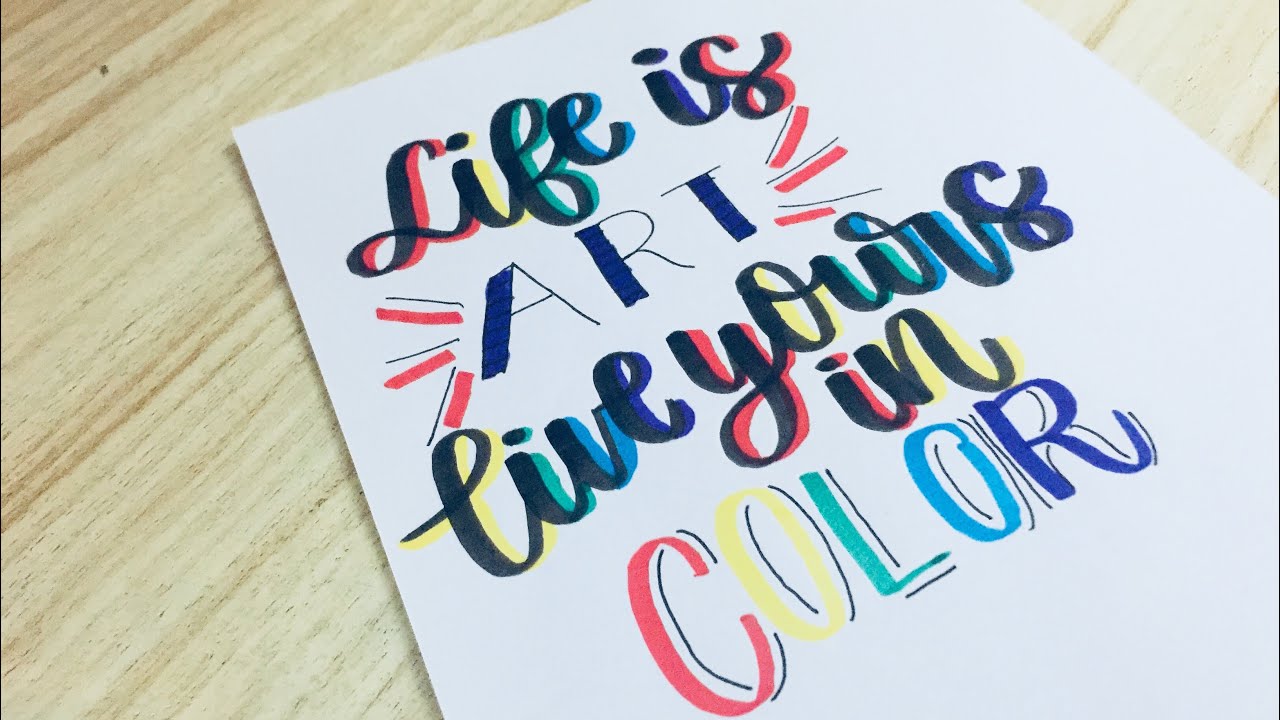 Life is
ART
live yours
in
COLOR